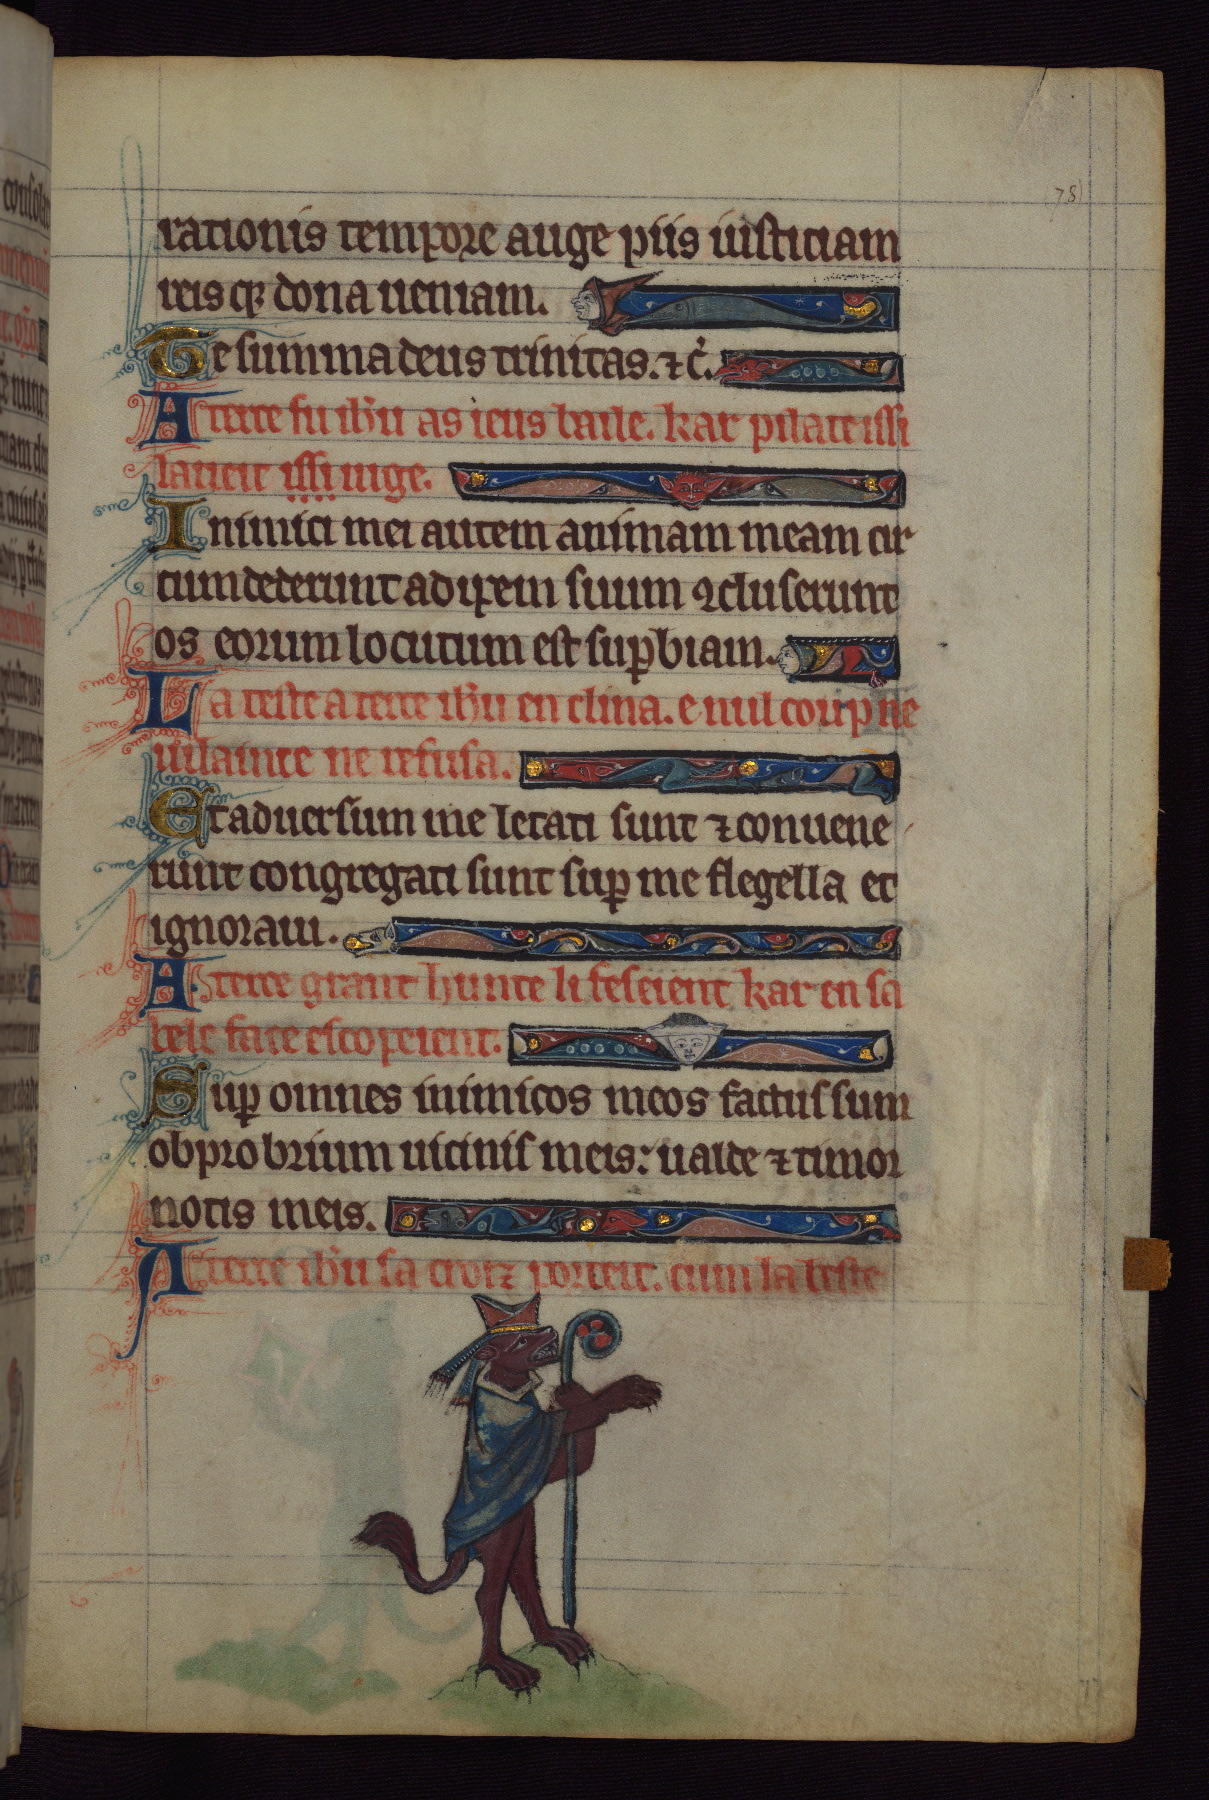 78
rationis tempore auge piis iusticiam
reisq; dona ueniam.
Te summa deus trinitas. ⁊ c̃.
A terre fu ih̃u as ieus baile. kar pilate issi
laueit issi iuge.
Inimici mei autem animam meam cir
cumdederunt adipem suum ꝯcluserunt
os eorum locutum est suꝑbiam.
La teste a terre ih̃u en clina. e nul coup ne
uilainte ne refusa.
Et aduersum me letati sunt ⁊ conuene
runt congregati sunt suꝑ me flegella et
ignoraui.
A terre grant hunte li feseient kar en sa
bele face escopeient.
Suꝑ omnes inimicos meos factus sum
obprobrium uicinis meis: ualde ⁊ timor
notis meis.
A terre ih̃u sa croiz porteit. cum la beste